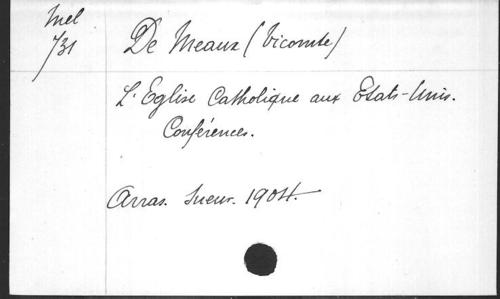 Mel
731
De Meaux (Vicomte)
L'Eglise Catholique aux Etats-Unis.
Conférences.
Arras. Sueur. 1904.